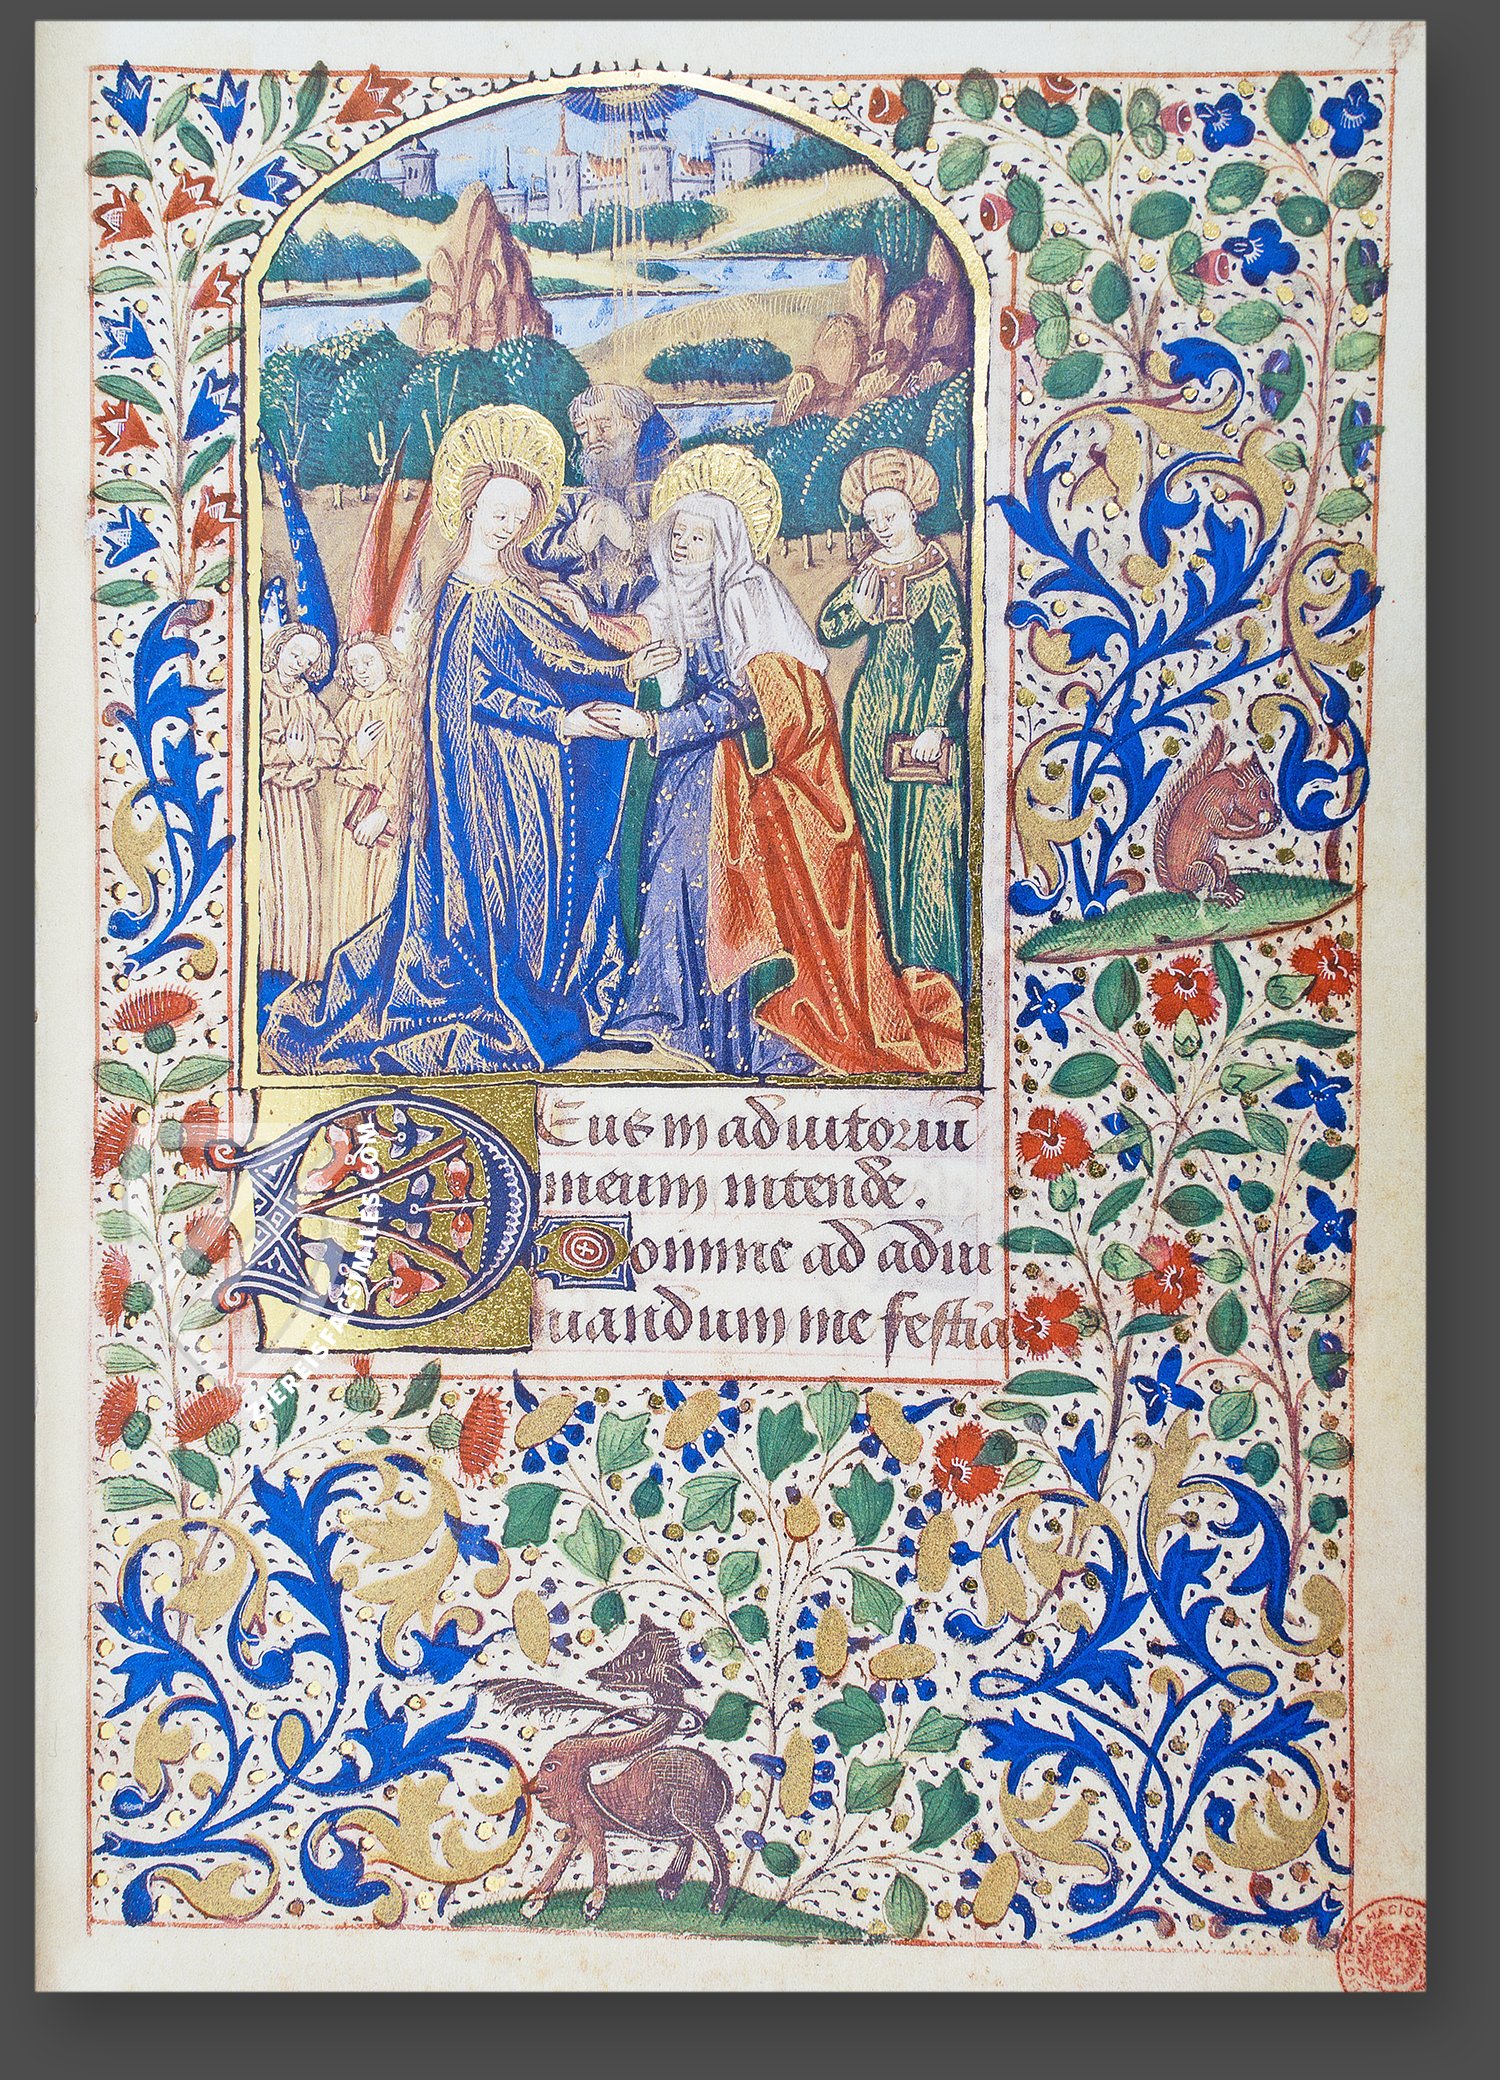 Deus in adiutoriũ
meum intende.
Domine ad adiu
uandum me festina
ZIEREISFACSIMILES.COM
NACION